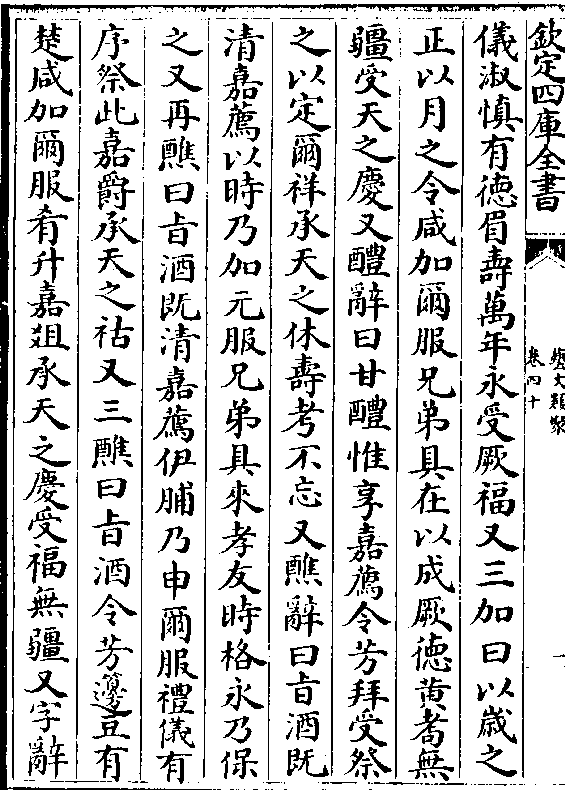 欽定四庫全書
藝文類聚
卷四十
儀淑慎有徳眉壽萬年永受厥福又三加曰以歳之
正以月之令咸加爾服兄弟具在以成厥徳黄耉無
疆受天之慶又醴辭曰甘醴惟享嘉薦令芳拜受祭
之以定爾祥承天之休壽考不忘又醮辭曰㫖酒既
清嘉薦以時乃加元服兄弟具來孝友時格永乃保
之又再醮曰㫖酒既清嘉薦伊脯乃申爾服禮儀有
序祭此嘉爵承天之祜又三醮曰㫖酒令芳籩豆有
楚咸加爾服肴升嘉爼承天之慶受福無疆又字辭